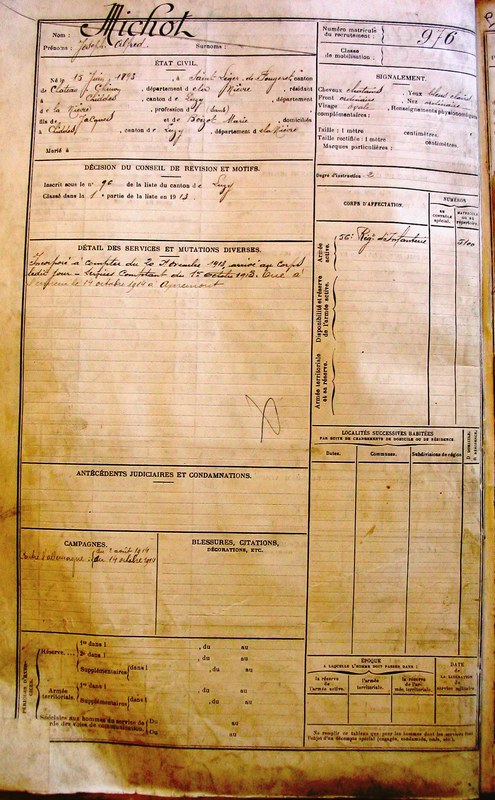 Nom : Michot
Prénoms : Joseph Alfred Surnoms :
Numéro matricule
du recrutement : 976
Classe
de mobilisation :
ÉTAT CIVIL.
Né le 15 1893, à Saint-Léger-de-Fougeret, canton
de Château-Chinon, département de la Nièvre, résidant
à Chiddes, canton de Luzy, département
de la Nièvre, profession de
fils de Jacques et de Marie, domiciliés
à Chiddes, canton de Luzy, département de la Nièvre
Marié à
SIGNALEMENT.
Cheveux châtains Yeux bleus clairs
Front ordinaire Nez ordinaire
Visage Renseignements physionomiques
complémentaires :
Taille : 1 mètre centimètres.
Taille rectifiée : 1 mètre centimètres.
Marques particulières :
Degré d'instruction : 2
DÉCISION DU CONSEIL DE RÉVISION ET MOTIFS.
Inscrit sous le n° 96 de la liste du canton de Luzy
Classé dans la 1e partie de la liste en 1913
CORPS D'AFFECTATION.
NUMÉROS
Armée
active.
56e Rég. d'Infanterie 5100
Disponibilité et réserve
de l'armée active.
Armée territoriale
et sa réserve.
DÉTAIL DES SERVICES ET MUTATIONS DIVERSES.
Incorporé à compter du 20 Novembre 1913, arrivé au Corps
ledit jour - Services Comptant du 1er Octobre 1913. Tué à
l'ennemi le 14 octobre 1914 à Apremont
LOCALITÉS SUCCESSIVES HABITÉES
PAR SUITE DE CHANGEMENTS DE DOMICILE OU DE RÉSIDENCE.
Dates. Communes. Subdivisions de région
ANTÉCÉDENTS JUDICIAIRES ET CONDAMNATIONS.
CAMPAGNES.
Contre l'allemagne du 2 août 1914
au 14 octobre 1914
BLESSURES, CITATIONS,
DÉCORATIONS, ETC.
Réserve
1re dans l , du au
2e dans l , du au
Supplémentaires dans l , du au
Armée
territoriale.
1re dans l , du au
Supplémentaires dans l , du au
Spéciales aux hommes du service de Du au
de des voies de communication. Du au
ÉPOQUE
À LAQUELLE L'HOMME DOIT PASSER DANS :
la réserve
de l'armée active.
l'armée
territoriale.
la réserve
de l'armée territoriale.
DATE
DE LA LIBÉRATION
du
service militaire